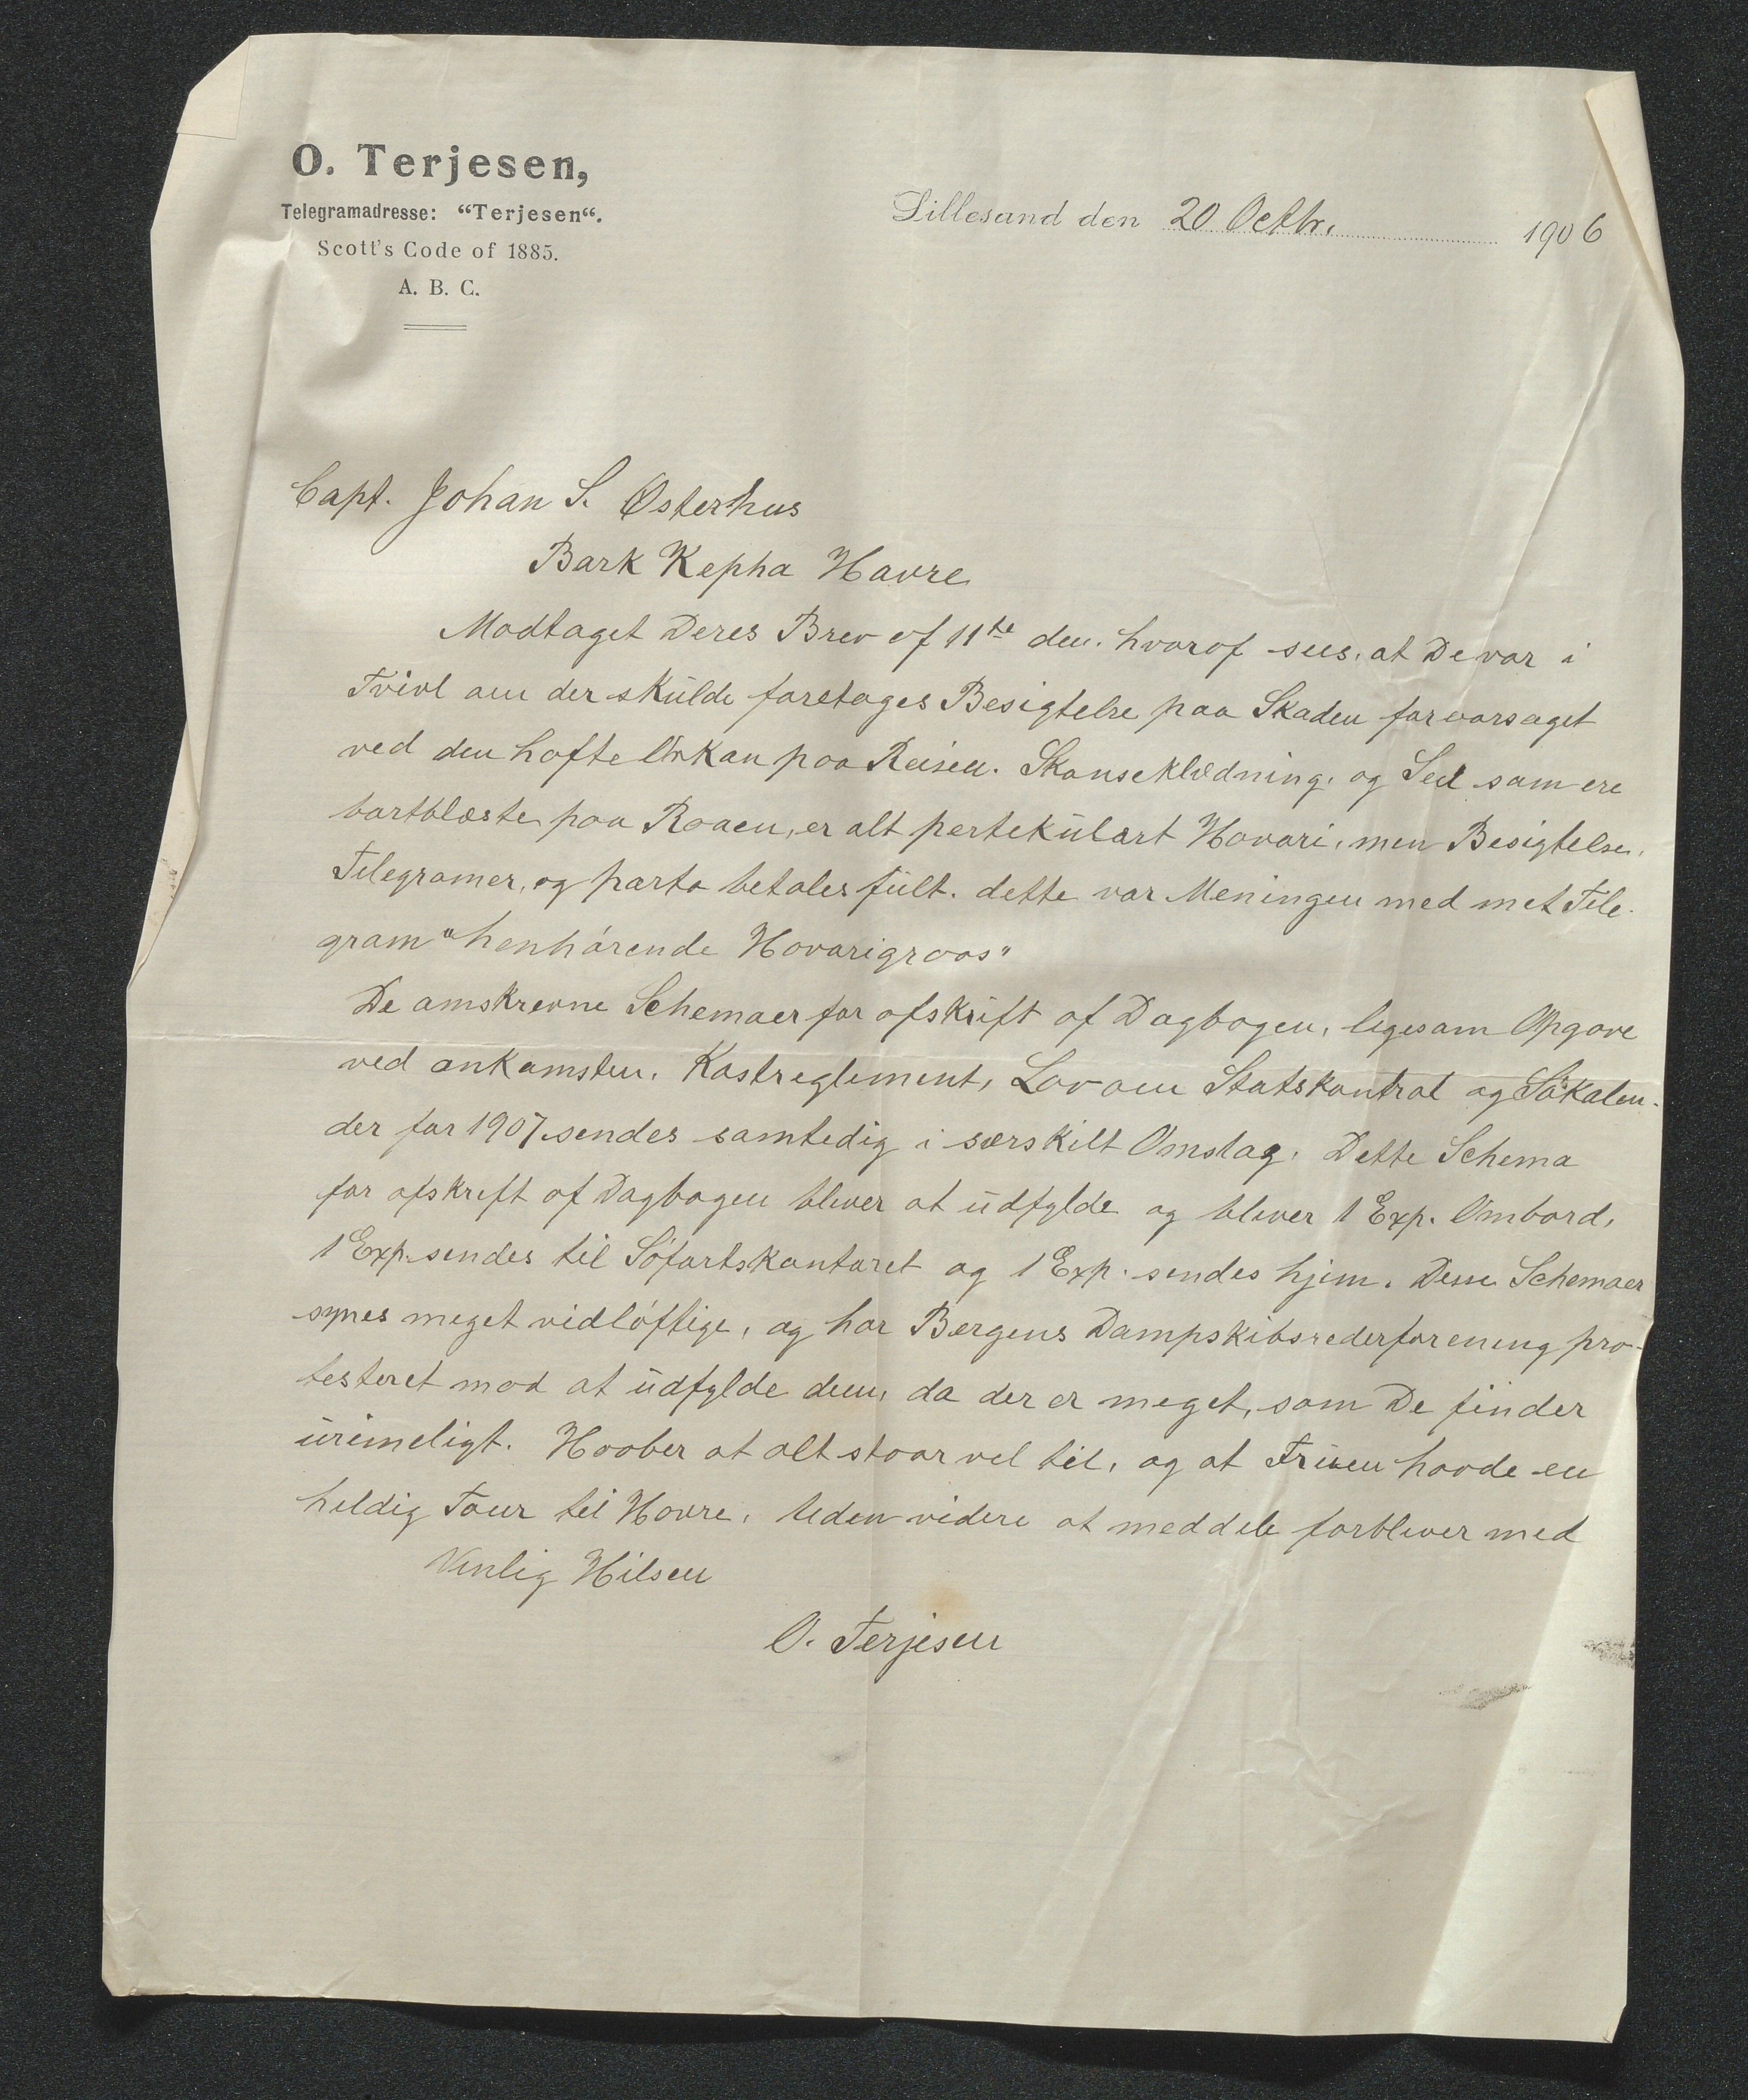 O. Terjesen,
Telegramadresse: “Terjesen“.
Scott's Code of 1885.
A. B. C.
Lillesand den 20 Octbr. 1906
Capt. Johan S. Østerhus
Bark Kepha Havre
Modtaget Deres Brev af 11te den. hvoraf sees, at De var i
Tvivl om der skulde foretages Besigtelse paa Skaden foraarsaget
ved den hafte Orkan paa Reisen. Skanseklædning, og Seil som ere
bortblæste paa Raaen, er alt partekulært Havari, men Besigtelse,
Telegramer, og porto betales fult. dette var Meningen med met Tele-
gram "henhørende Havarigroos"
De omskrevne Schemaer for afskrift af Dagbogen, ligesom Opgave
ved ankomsten, Kostreglement, Lov om Statskontrol og Søkalen-
der for 1907 sendes samtedig i særskilt Omslag. Dette Schema
for afskreft af Dagbogen bliver at udfylde og bliver 1 Exp. Ombord,
1 Exp. sendes til Søfartskontoret og 1 Exp. sendes hjem. Desse Schemaer
synes meget vidløftige, og har Bergens Dampskibsrederforening pro-
testeret mod at udfylde dem, da der er meget, som De finder
urimeligt. Haaber at alt staar vel til, og at Fruen havde en
heldig Tour til Havre. Uden videre at meddele forbliver med
Venlig Hilsen
O. Terjesen